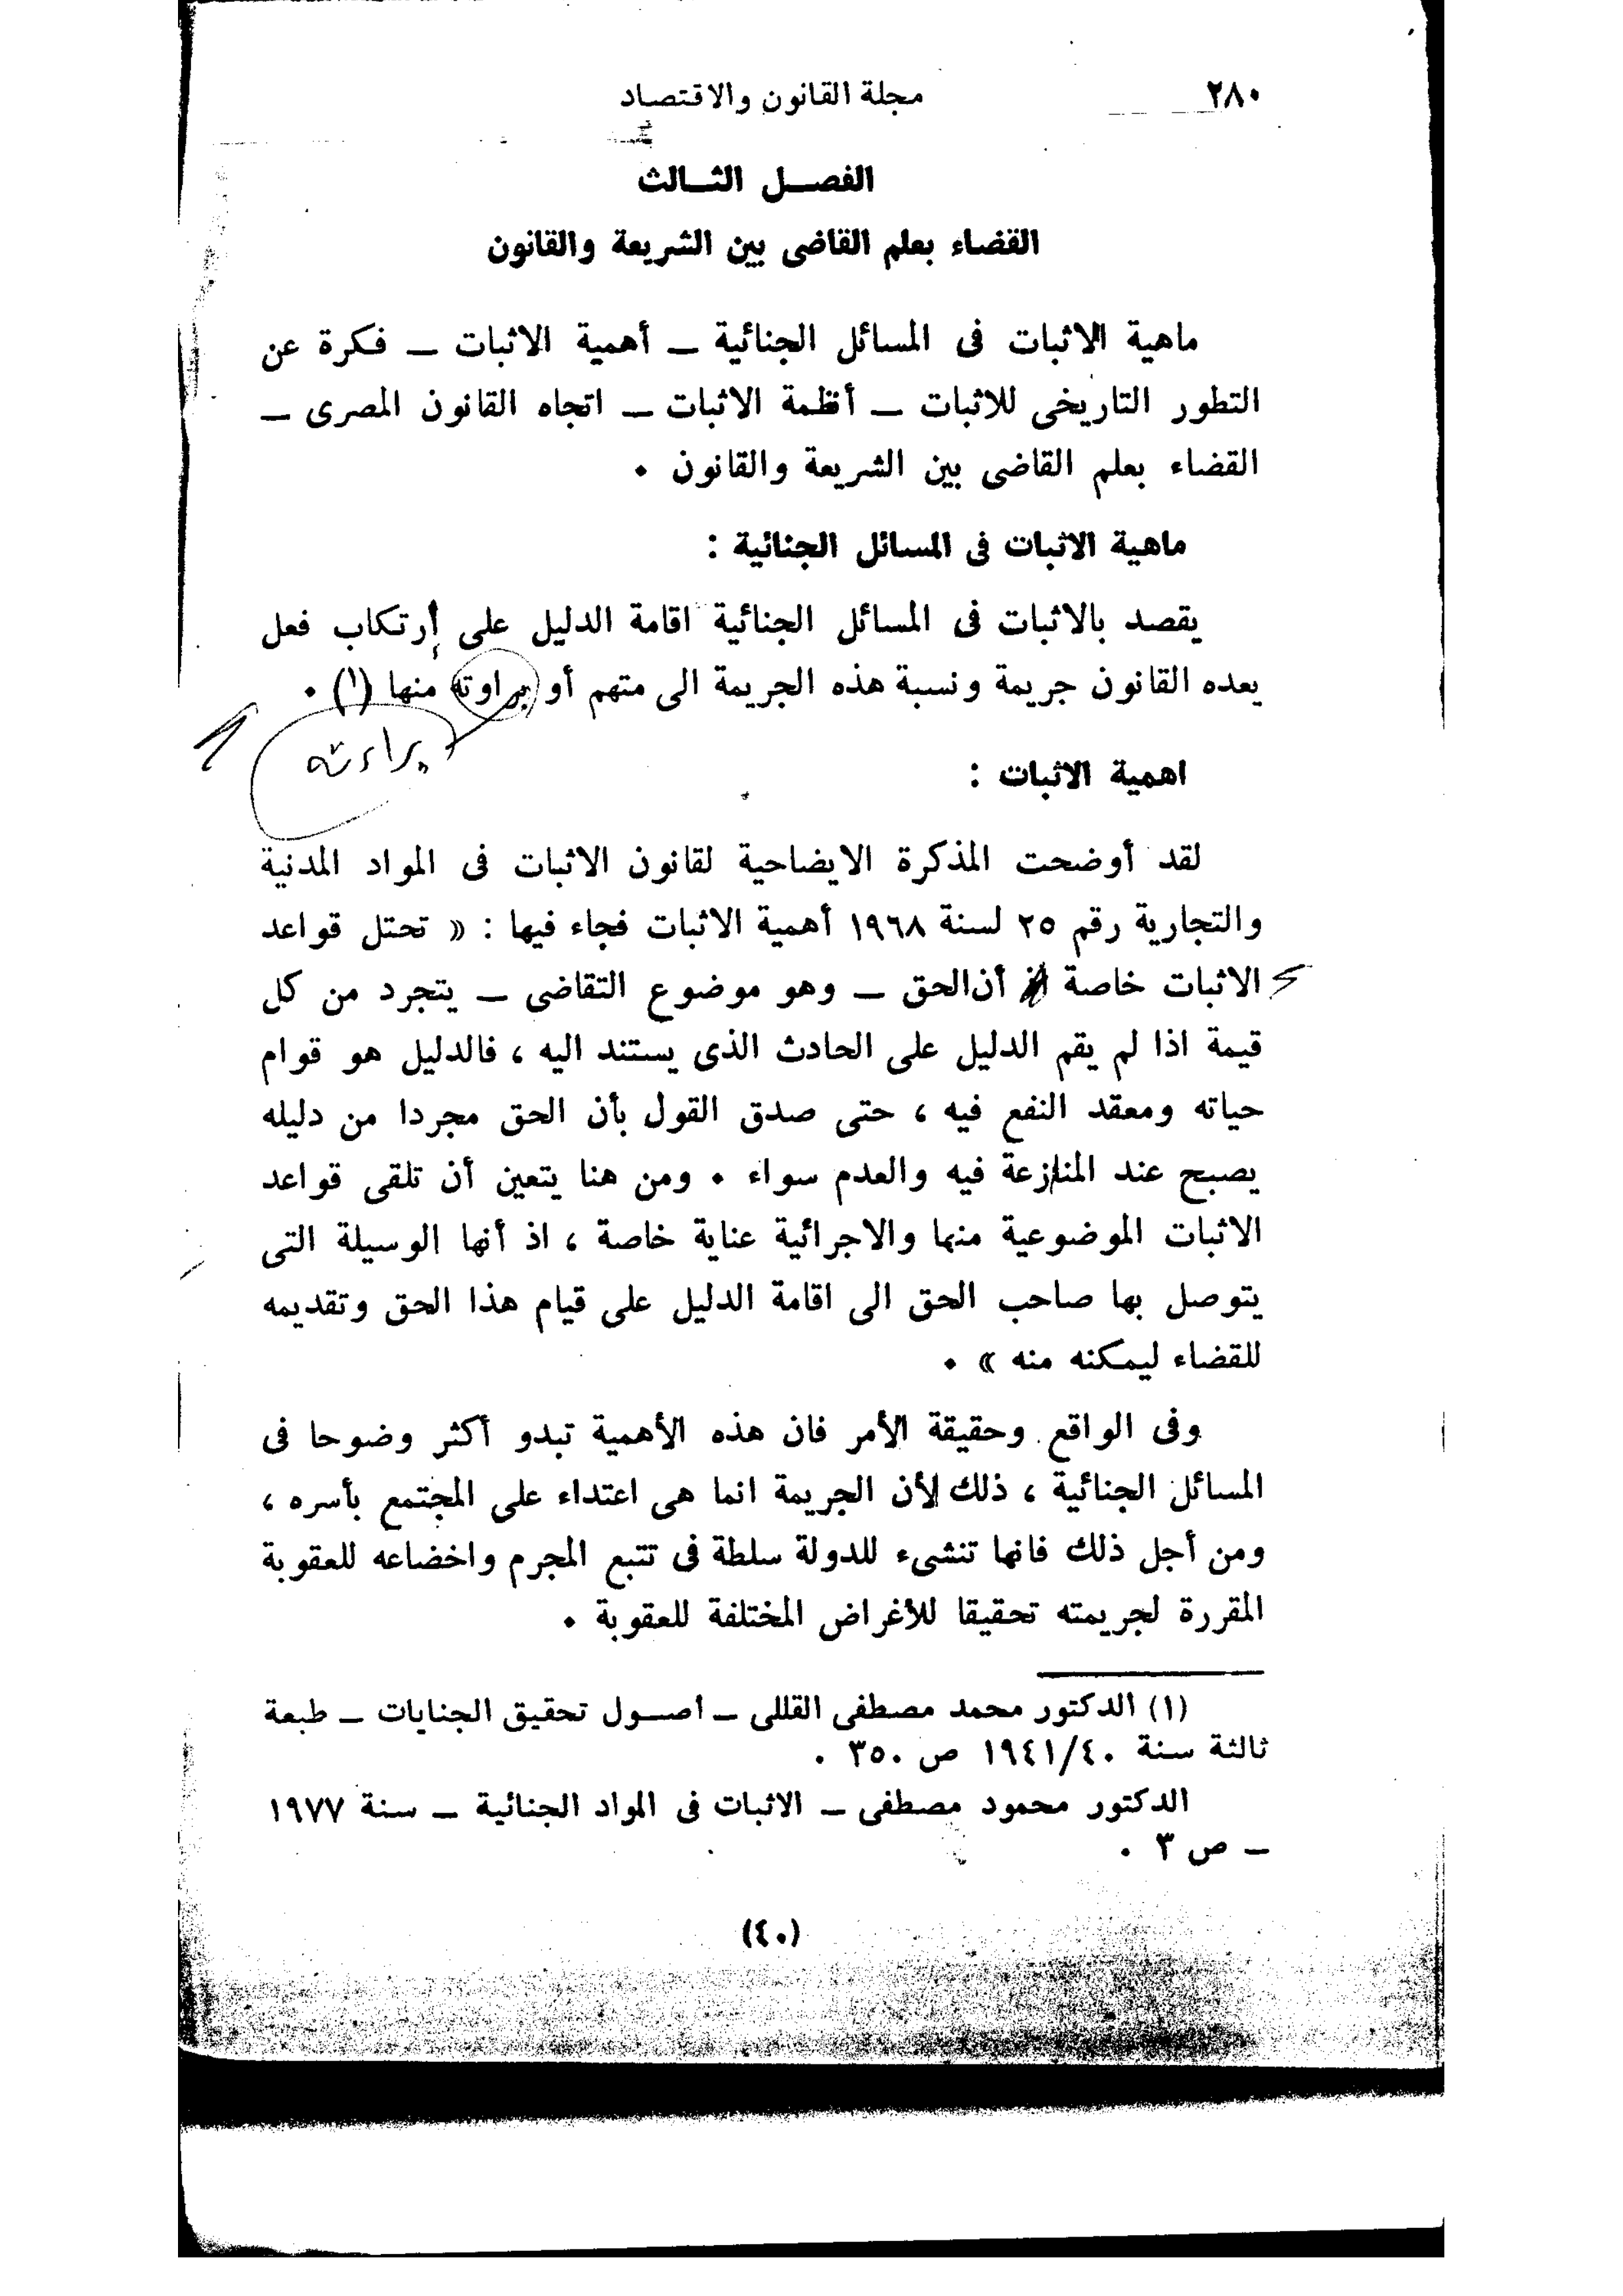 ٢٨٠
مجلة القانون والاقتصاد
الفصــل الثــالث
القضاء بعلم القاضى بين الشريعة والقانون
ماهية الاثبات فى المسائل الجنائية ــ أهمية الاثبات ــ فكرة عن
التطور التاريخى للاثبات ــ أنظمة الاثبات ــ اتجاه القانون المصرى ــ
القضاء بعلم القاضى بين الشريعة والقانون ٠
ماهية الاثبات فى المسائل الجنائية :
يقصد بالاثبات فى المسائل الجنائية اقامة الدليل على إرتكاب فعل
يعده القانون جريمة ونسبة هذه الجريمة الى متهم أو براوته منها (١) ٠
براءته
اهمية الاثبات :
لقد أوضحت المذكرة الايضاحية لقانون الاثبات فى المواد المدنية
والتجارية رقم ٢٥ لسنة ١٩٦٨ أهمية الاثبات فجاء فيها : « تحتل قواعد
الاثبات خاصة أن الحق ــ وهو موضوع التقاضى ــ يتجرد من كل
قيمة اذا لم يقم الدليل على الحادث الذى يستند اليه ، فالدليل هو قوام
حياته ومعقد النفع فيه ، حتى صدق القول بأن الحق مجردا من دليله
يصبح عند المنازعة فيه والعدم سواء ٠ ومن هنا يتعين أن تلقى قواعد
الاثبات الموضوعية منها والاجرائية عناية خاصة ، اذ أنها الوسيلة التى
يتوصل بها صاحب الحق الى اقامة الدليل على قيام هذا الحق وتقديمه
للقضاء ليمكنه منه » ٠
وفى الواقع وحقيقة الأمر فان هذه الأهمية تبدو أكثر وضوحا فى
المسائل الجنائية ، ذلك لأن الجريمة انما هى اعتداء على المجتمع بأسره ،
ومن أجل ذلك فانها تنشىء للدولة سلطة فى تتبع المجرم واخضاعه للعقوبة
المقررة لجريمته تحقيقا للأغراض المختلفة للعقوبة ٠
(١) الدكتور محمد مصطفى القللى ــ اصــول تحقيق الجنايات ــ طبعة
ثالثة سنة ١٩٤١/٤٠ ص ٣٥٠ .
الدكتور محمود مصطفى ــ الاثبات فى المواد الجنائية ــ سنة ١٩٧٧
ــ ص ٣ .
(٤٠)